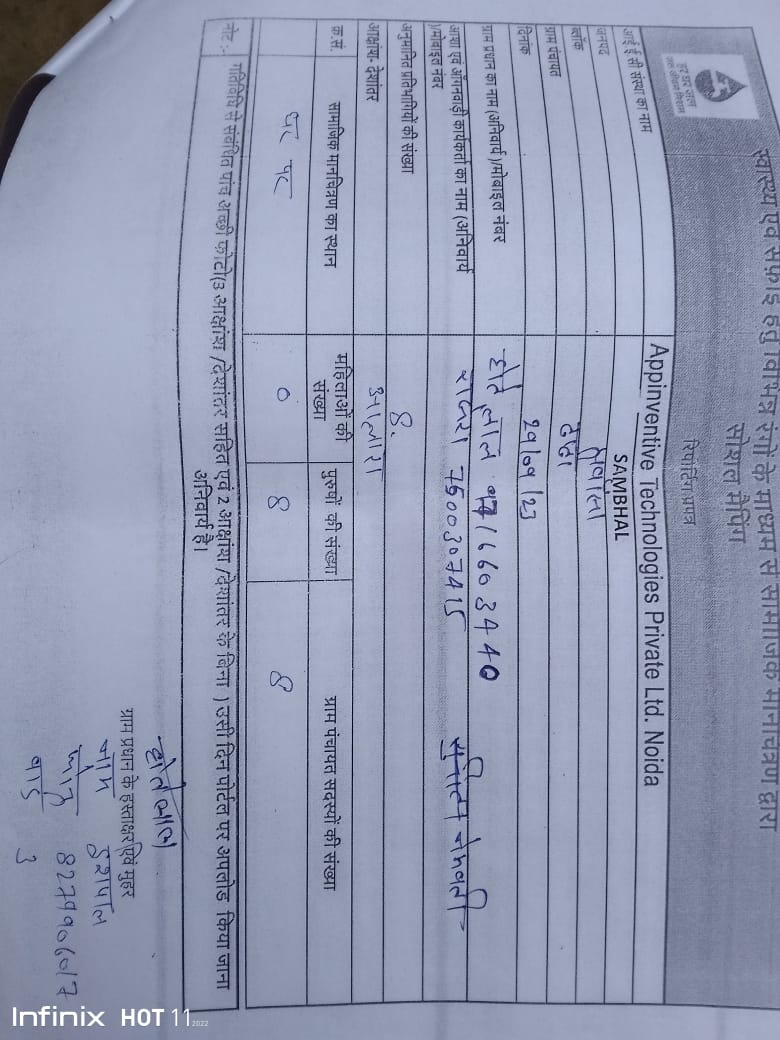 स्वास्थ्य एवं सफाई हेतु विभिन्न रंगों के माध्यम से सामाजिक मानचित्रण द्वारा
सोशल मैपिंग
हर घर जल
जल जीवन मिशन
रिपोर्टिंग प्रपत्र
आई ई सी संस्था का नाम Appinventive Technologies Private Ltd. Noida
जनपद SAMBHAL
ब्लॉक
ग्राम पंचायत
दिनांक 29/09/23
ग्राम प्रधान का नाम (अनिवार्य)/मोबाइल नंबर होते लाल
आशा एवं आँगनवाड़ी कार्यकर्ता का नाम (अनिवार्य
)/मोबाइल नंबर 7500307415
अनुमानित प्रतिभागियों की संख्या 8.
आक्षांश- देशांतर
क्र.सं. सामाजिक मानचित्रण का स्थान महिलाओं की संख्या पुरुषों की संख्या ग्राम पंचायत सदस्यों की संख्या
0 8 8
नोट :- गतिविधि से संबंधित पांच अच्छी फोटो(3 आक्षांश /देशांतर सहित एवं 2 आक्षांश /देशांतर के बिना ) उसी दिन पोर्टल पर अपलोड किया जाना
अनिवार्य है।
होते लाल
ग्राम प्रधान के हस्ताक्षर एवं मुहर
नाम
वार्ड 3
Infinix HOT 11 2022